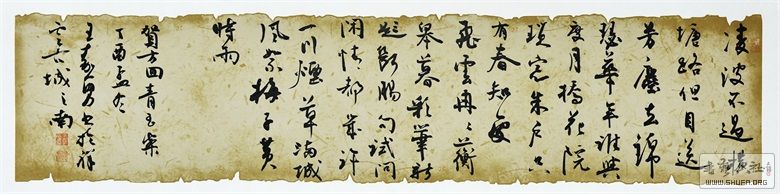 凌波不過
塘路但目送
芳塵去錦
瑟華年誰與
度月橋花院
瑣窗朱戶只
有春知處
飛雲冉冉蘅
皋暮彩筆新
題斷腸句試問
閑情都幾許
一川煙草滿城
風絮梅子黃
時雨
賀方回青玉案
丁酉孟冬
王男書於祥
雲古城之南
横
WWW.SHUFA.ORG